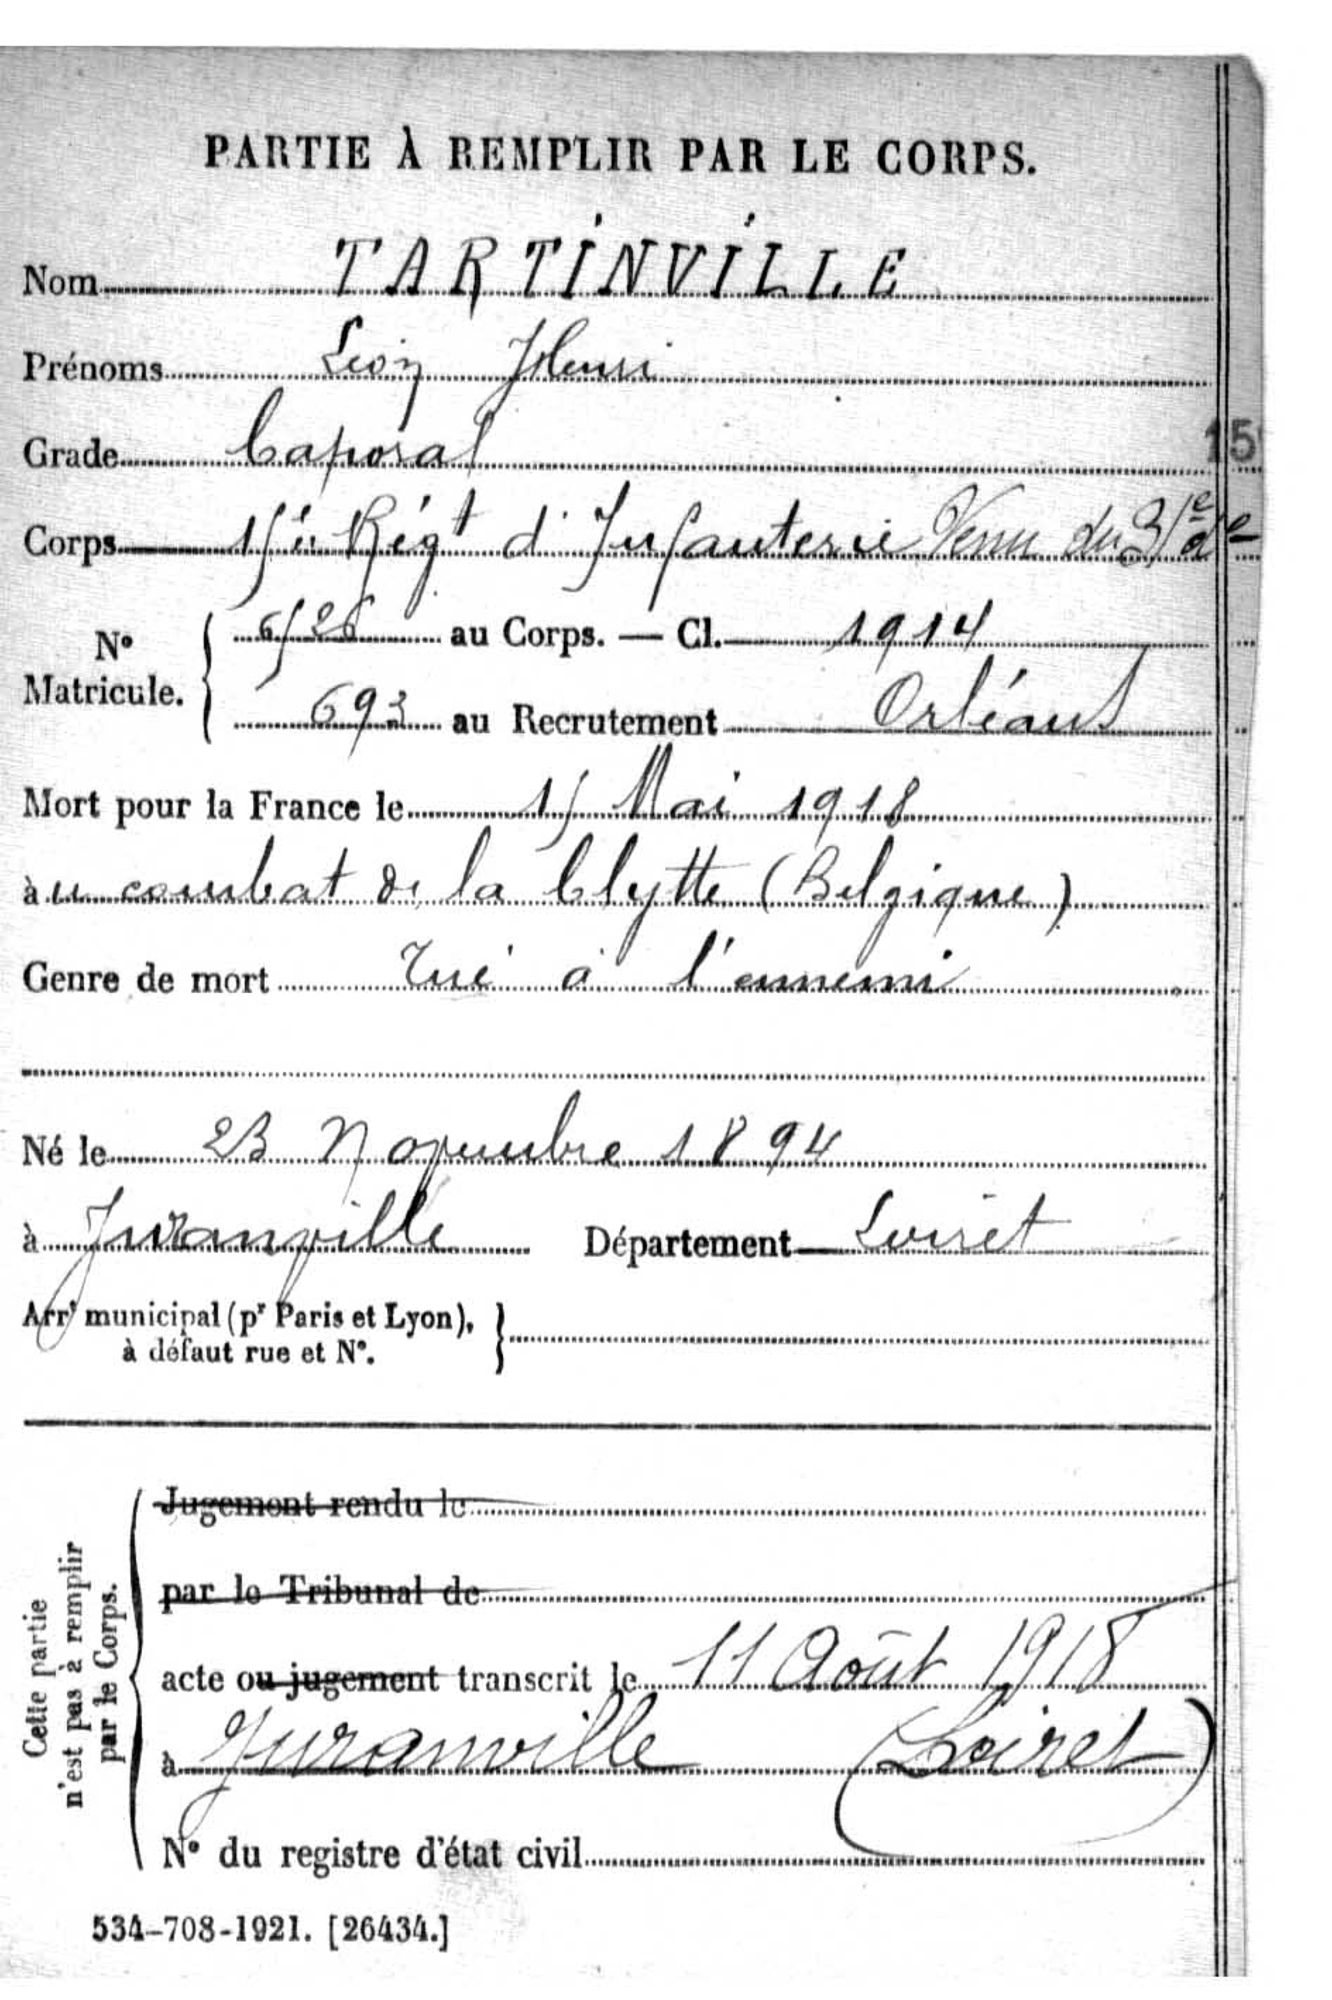 PARTIE À REMPLIR PAR LE CORPS.
Nom TARTINVILLE
Prénoms Léon Henri
Grade Caporal
15
Corps Régt d'Infanterie Venu du 31e d'
N° Matricule. au Corps. — Cl. 1914
693 au Recrutement Orléans
Mort pour la France le Mai 1918
àu combat de la Clytte (Belgique)
Genre de mort Tué à l'ennemi
Né le 23 Novembre 1894
à Juranville Département Loiret
Arrt municipal (pr Paris et Lyon),
à défaut rue et N°.
Cette partie
n'est pas à remplir
par le Corps.
Jugement rendu le
par le Tribunal de
acte ou jugement transcrit le 11 Août 1918
à Juranville (Loiret)
N° du registre d'état civil
534-708-1921. [26434.]